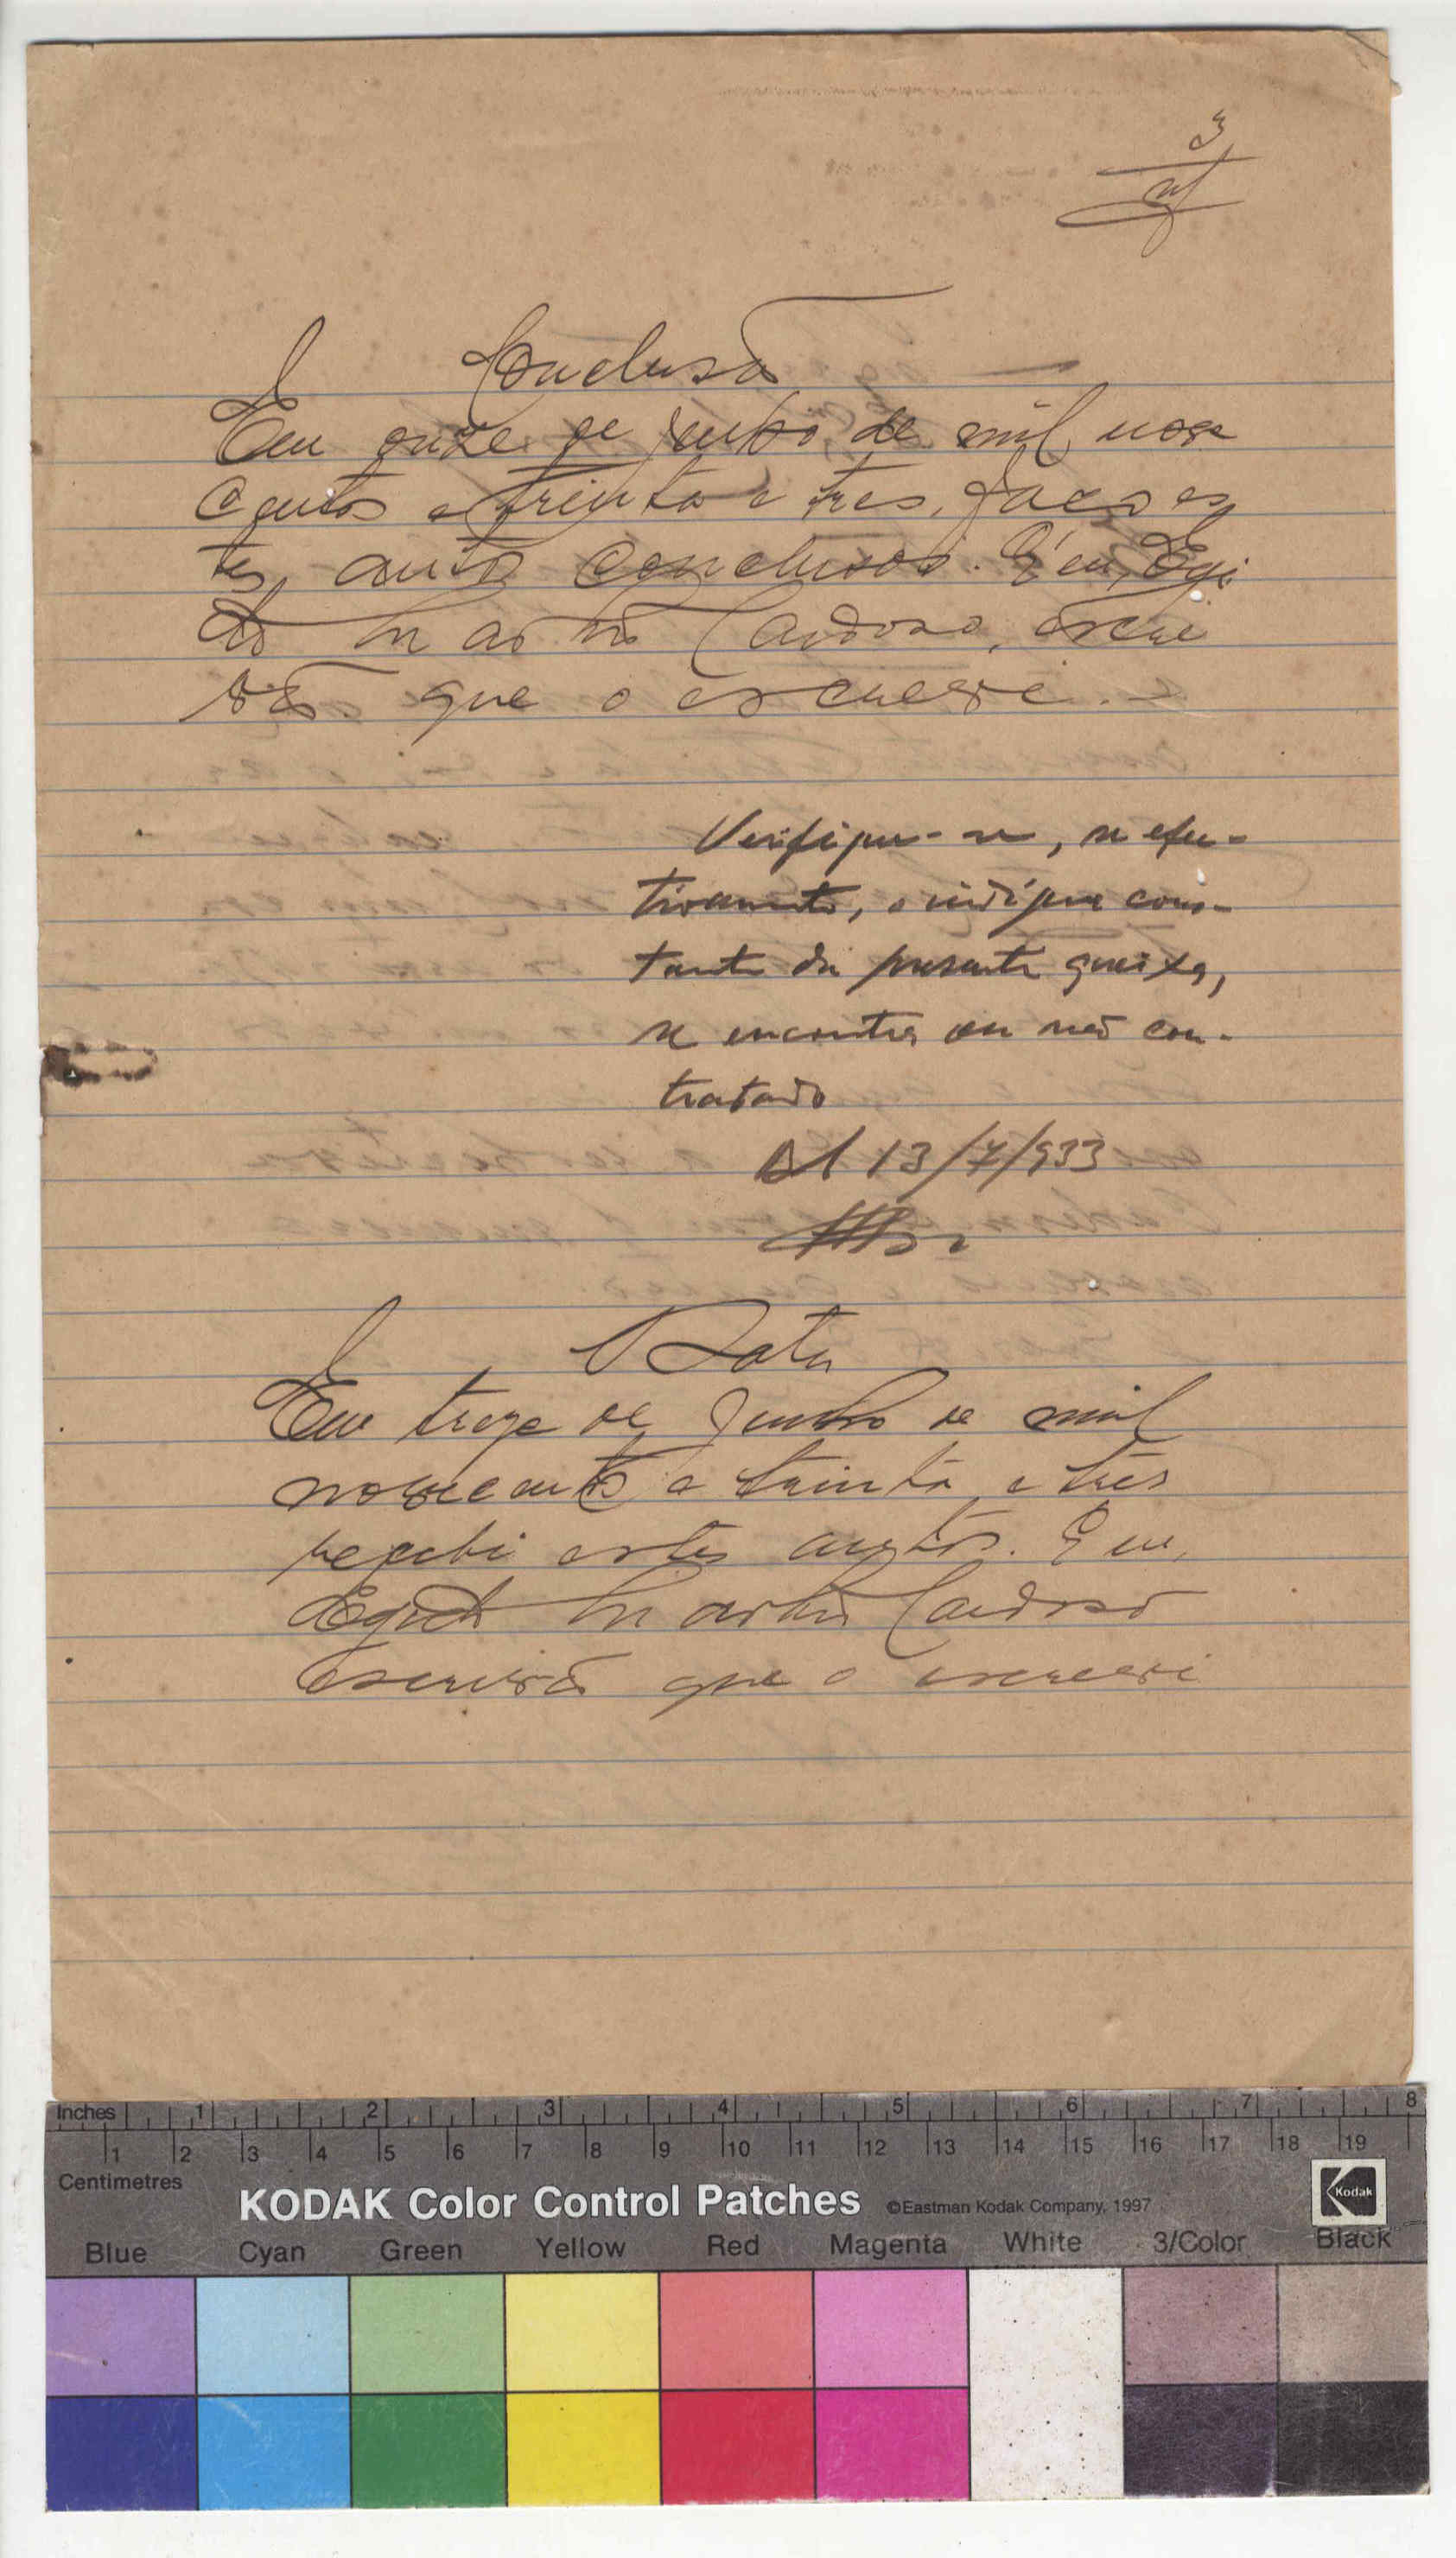 3
Conclusão
Em onze de Junho de mil nove
centos e trinta e tres, faço es
tes autos conclusos. E eu, Egi
dio Martins Cardoso, escri
vão que o escrevi.
Verifique-se, se efec-
tivamente, o indígena cons-
tante da presente queixa,
se encontra ou não con-
tratado
13/7/933
Data
Em treze de Junho de mil
novecentos e trinta e três
recebi estes autos. E eu,
Egidio Martins Cardoso
escrivão que o escrevi
Inches 1 2 3 4 5 6 7 8
1 2 3 4 5 6 7 8 9 10 11 12 13 14 15 16 17 18 19
Centimetres
KODAK Color Control Patches ©Eastman Kodak Company, 1997 Kodak
Blue Cyan Green Yellow Red Magenta White 3/Color Black